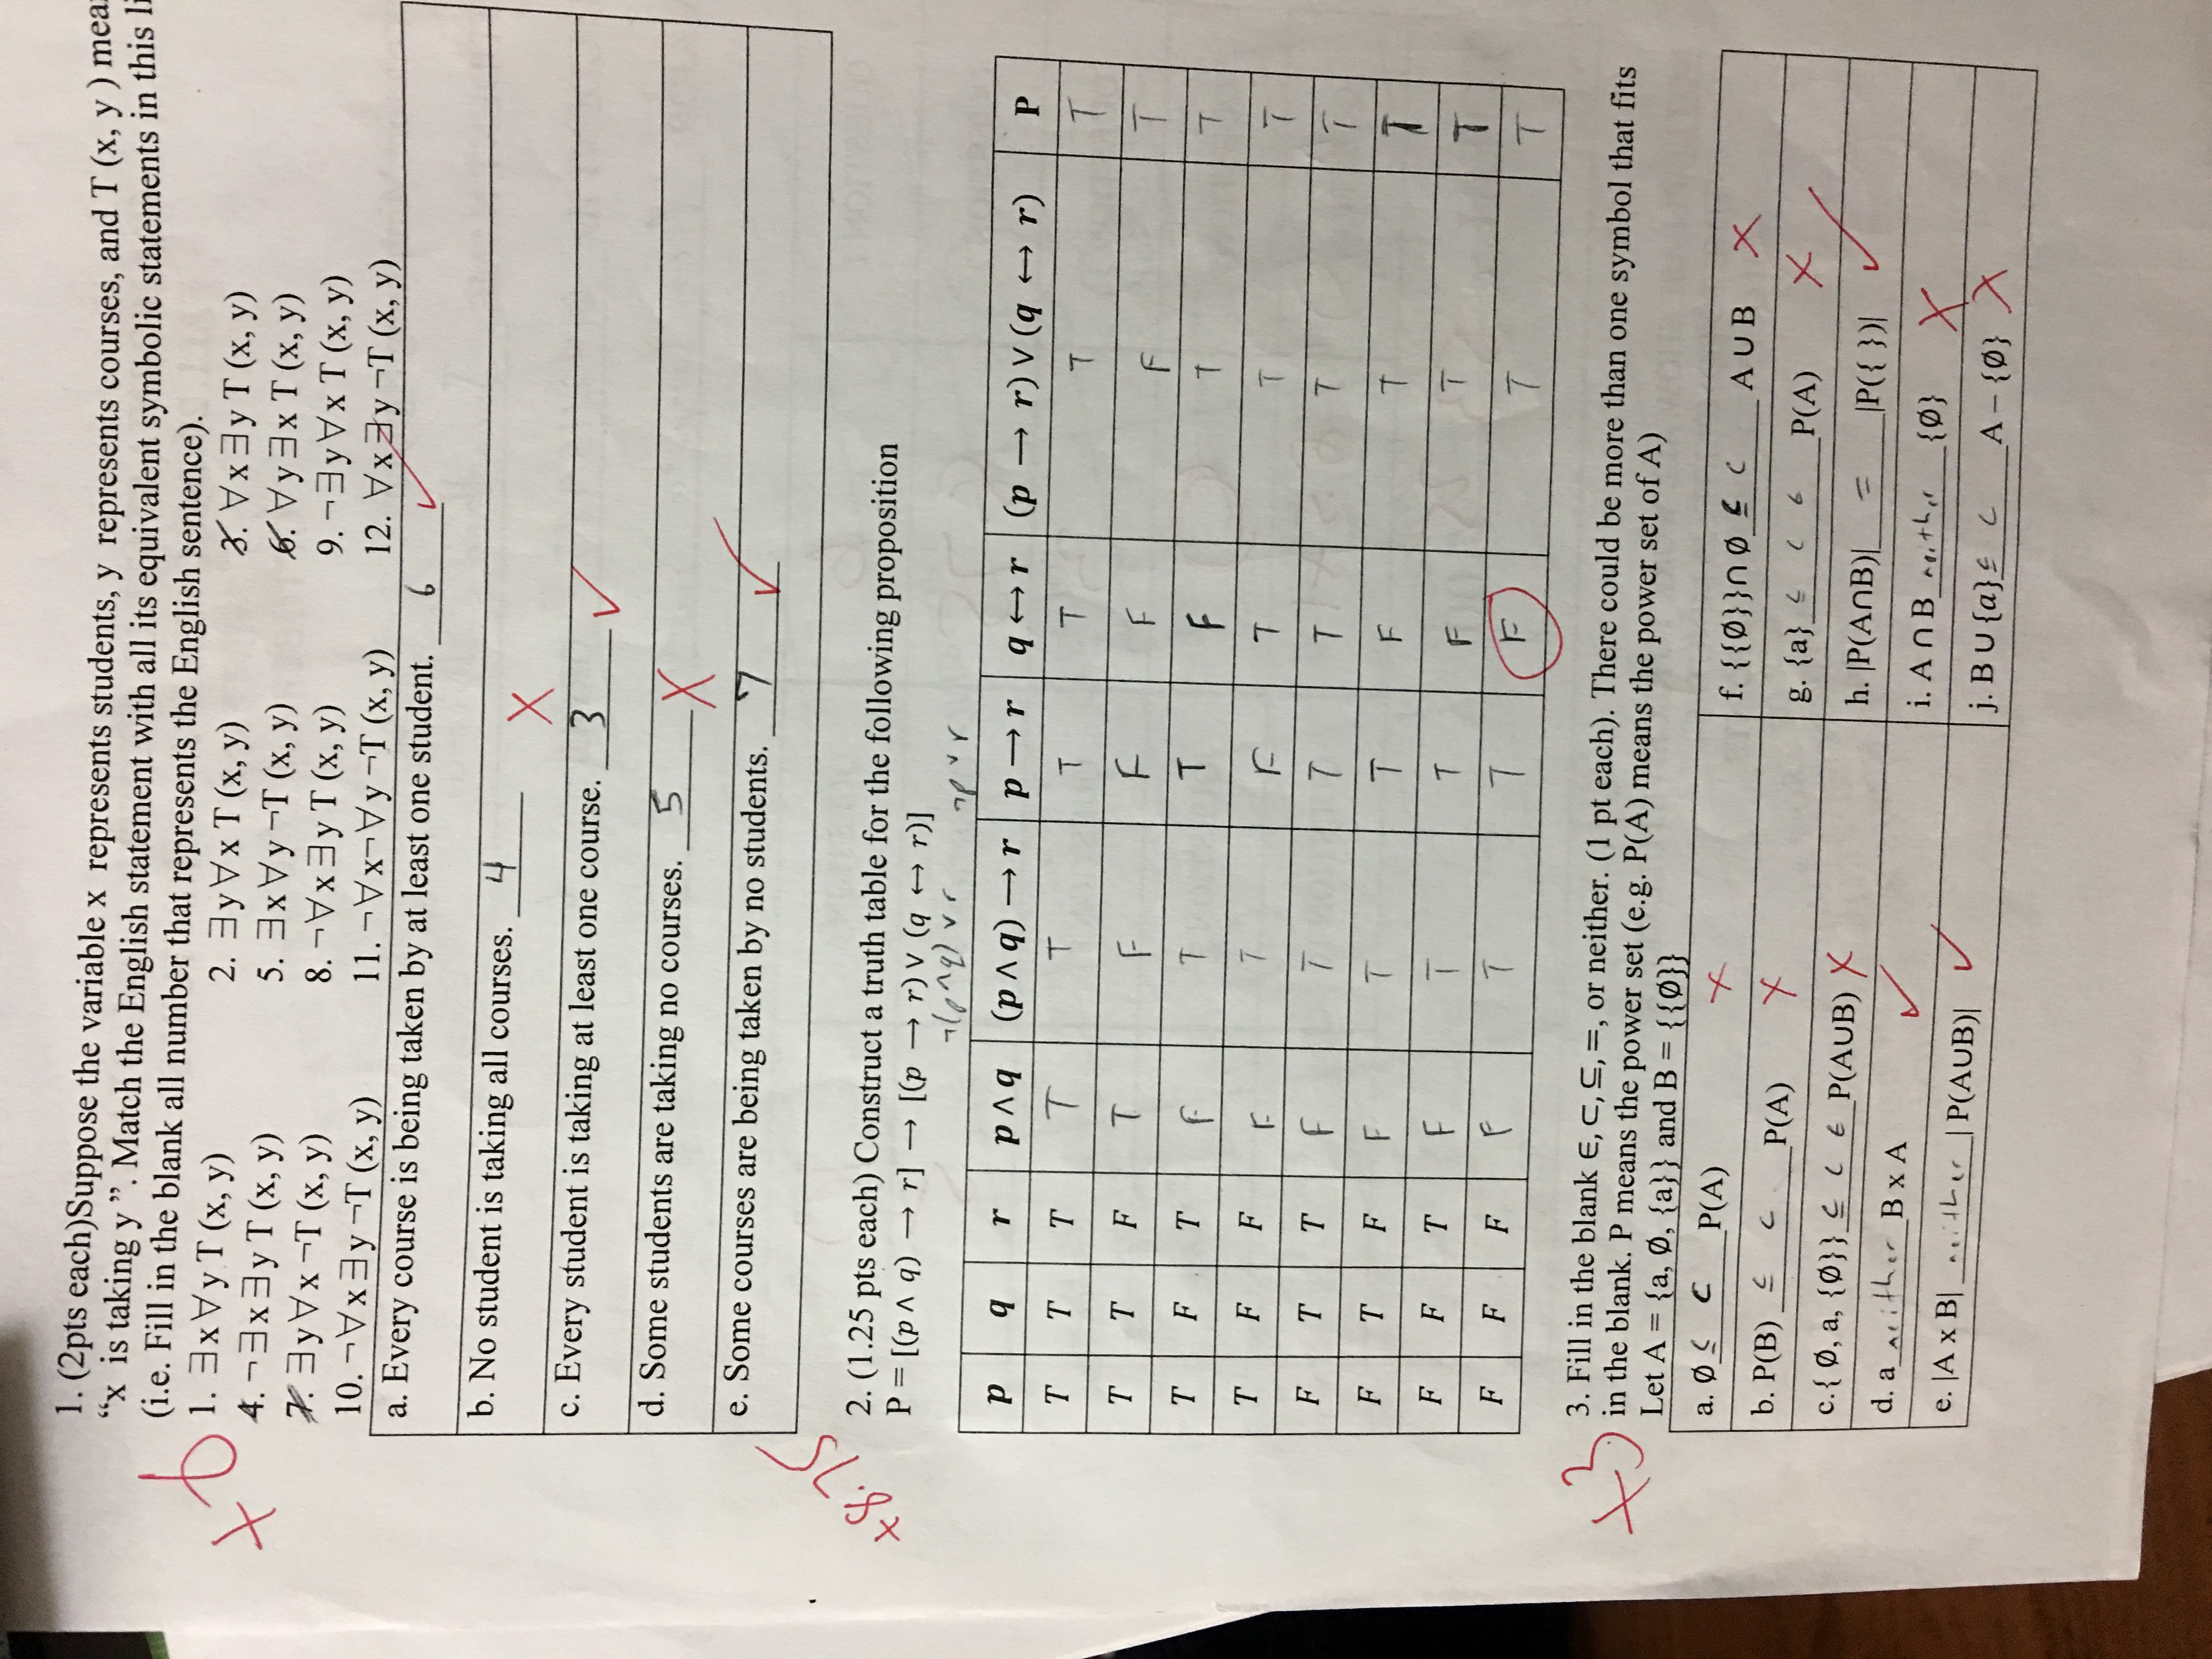 1. (2pts each)Suppose the variable x represents students, y represents courses, and T (x, y ) mea
“x is taking y ”. Match the English statement with all its equivalent symbolic statements in this li
(i.e. Fill in the blank all number that represents the English sentence).
+6
1. ∃x∀y T (x, y) 2. ∃y∀x T (x, y) 3. ∀x∃y T (x, y)
4. ¬∃x∃y T (x, y) 5. ∃x∀y ¬T (x, y) 6. ∀y∃x T (x, y)
7. ∃y∀x ¬T (x, y) 8. ¬∀x∃y T (x, y) 9. ¬∃y∀x T (x, y)
10. ¬∀x∃y ¬T (x, y) 11. ¬∀x¬∀y ¬T (x, y) 12. ∀x∃y ¬T (x, y)
a. Every course is being taken by at least one student. 6 ✓
b. No student is taking all courses. 4 X
c. Every student is taking at least one course. 3 ✓
d. Some students are taking no courses. 5 X
e. Some courses are being taken by no students. 7 ✓
+8.75
2. (1.25 pts each) Construct a truth table for the following proposition
P = [(p ∧ q) → r] → [(p → r) ∨ (q ↔ r)]
¬(p∧q) ∨ r ¬p ∨ r
p q r p ∧ q (p ∧ q) → r p → r q ↔ r (p → r) ∨ (q ↔ r) P
T T T T T T T T T
T T F T F F F F T
T F T F T T F T T
T F F F T F T T T
F T T F T T T T T
F T F F T T F T T
F F T F T T F T T
F F F F T T F T T
+3
3. Fill in the blank ∈, ⊂, ⊆, =, or neither. (1 pt each). There could be more than one symbol that fits
in the blank. P means the power set (e.g. P(A) means the power set of A)
Let A = {a, Ø, {a}} and B = {{Ø}}
a. Ø ⊆ ⊂ P(A) X
b. P(B) ⊆ ⊂ P(A) X
c.{ Ø, a, {Ø}} ⊆ ⊂ ∈ P(A∪B) X
d. a neither B x A ✓
e. |A x B| neither | P(A∪B)| ✓
f. {{Ø}}∩ Ø ⊆ ⊂ A ∪ B X
g. {a} ⊆ ⊂ ∈ P(A) X
h. |P(A∩B)| = |P({ })| ✓
i. A ∩ B neither {Ø} X
j. B ∪ {a} ⊆ ⊂ A – {Ø} X